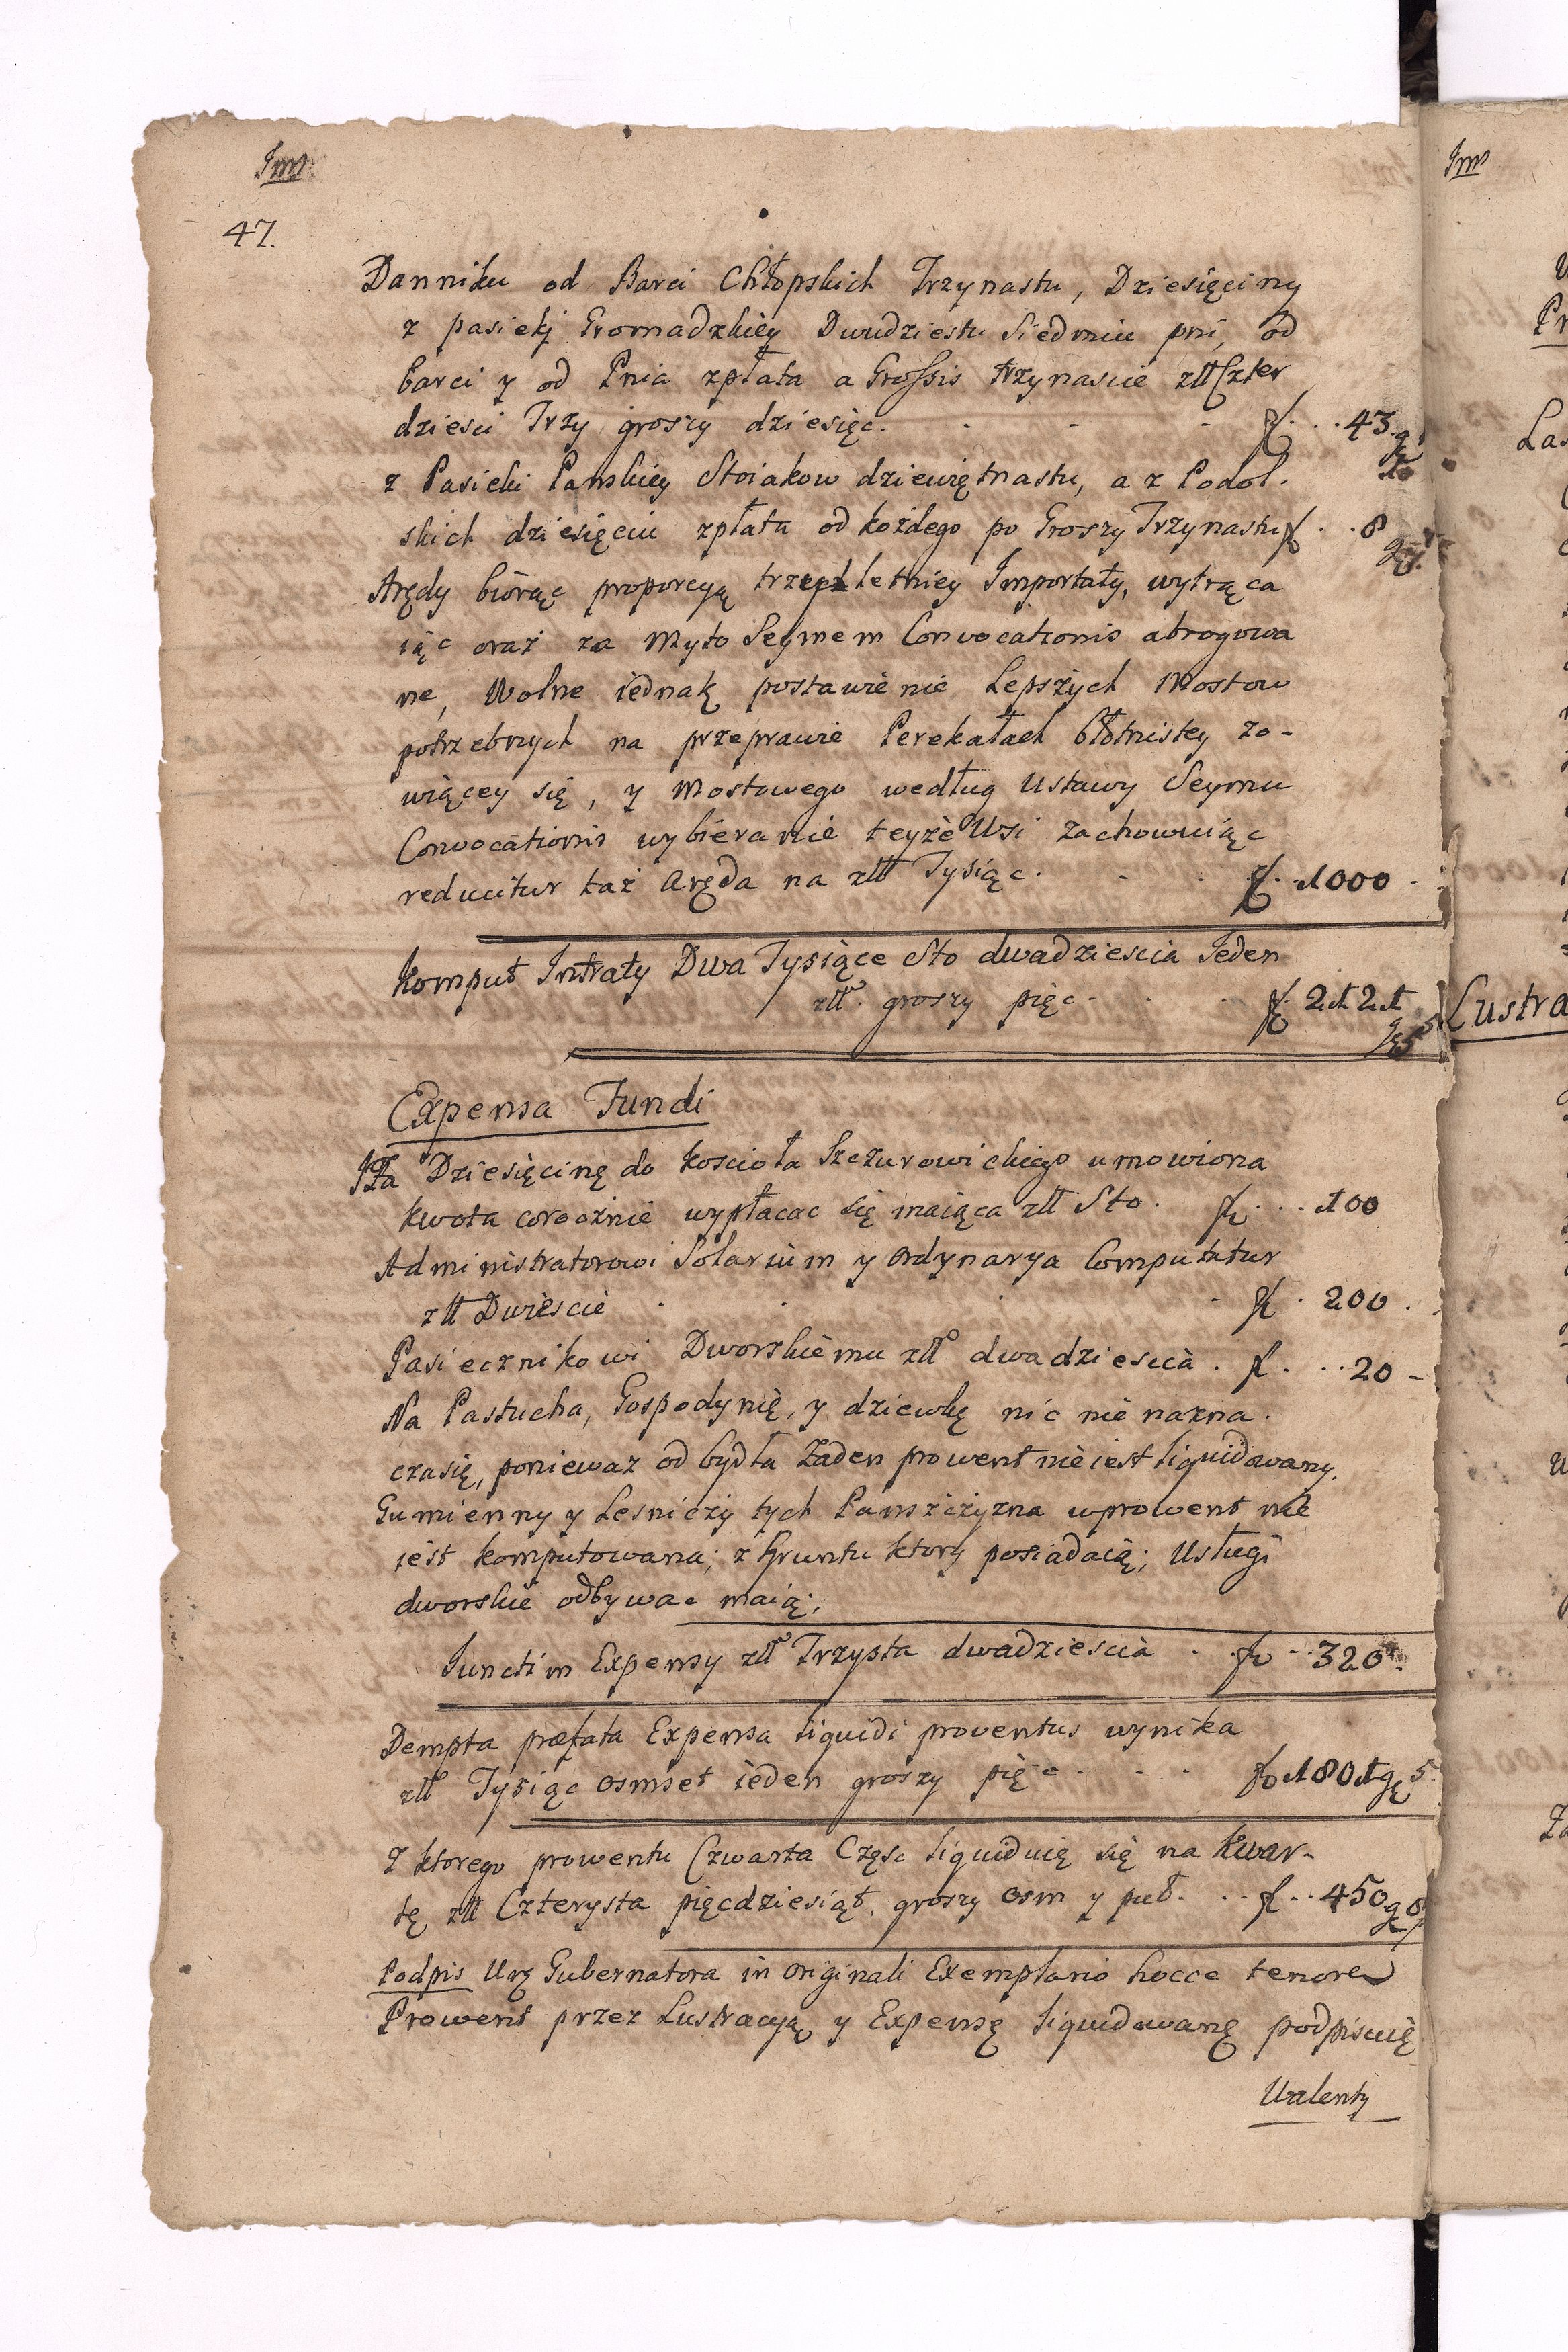 Jms
47.
Danniku od Barci Chłopskich Trzynastu, Dziesięciny
z pasiekj Gromadzkiey Dwudziestu Siedmiu pni, od
barci y od Pnia zpłata a Grossis trzynascie złł Czter
dziesci Trzy groszy dziesięc. fl. 43. gr 10
z Pasieki Panskiey Stoiakow dziewiętnastu, a z Podol.
skich dziesięciu zpłata od każdego po Groszy Trzynastu fl. 8
Arędy biorąc proporcyą letniey Importaty, wytrąca
iąc oraz za Myto Seymem Convocationis abrogowa
ne, Wolne iednak postawienie Lepszych Mostow
potrzebnych na przeprawie Perekałach błotnistey zo-
wiącey się, y Mostowego według Ustawy Seymu
Convocationis wybieranie teyże Wsi zachowuiąc
reducitur taż Aręda na złł Tysiąc. fl. 1000
Komput Intraty Dwa Tysiące Sto dwadziescia Jeden
złł. groszy pięc fl. 2121 gr 5
Expensa Fundi
Za Dziesięcinę do Koscioła Szczurowickiego umowiona
kwota corocznie wypłacac się maiąca złł Sto. fl. 100
Administratorowi Solarium y Ordynarya Computatur
złł Dwiescie fl. 200.
Pasiecznikowi Dworskiemu złł dwadziescia. fl. 20 -
Na Pastucha, Gospodynię, y dziewkę nic nie nazna.
czasię, poniewaz od bydła Żaden prowent nie iest liquidowany.
Gumienny y Lesniczy tych Panszczyzna wprowent nie
iest komputowana; z Gruntu ktory posiadaią; Usługi
dworskie odbywac maią;
Junctim Expensy złł Trzysta dwadziescia fl. 320.
Dempta præfata Expensa liquidi proventus wynika
złł Tysiąc osmset ieden groszy pięc fl. 1801 gr 5.
Z ktorego prowentu Czwarta Częsc liquiduię się na kwar-
tę złł Czterysta pięcdziesiąt, groszy osm y puł. fl. 450 gr 8
Podpis Urg Gubernatora in Originali Exemplario hocce tenore
Prowent przez Lustracyą y Expensę liquidowanę podpisuię
Walenty
Jms
Lustra